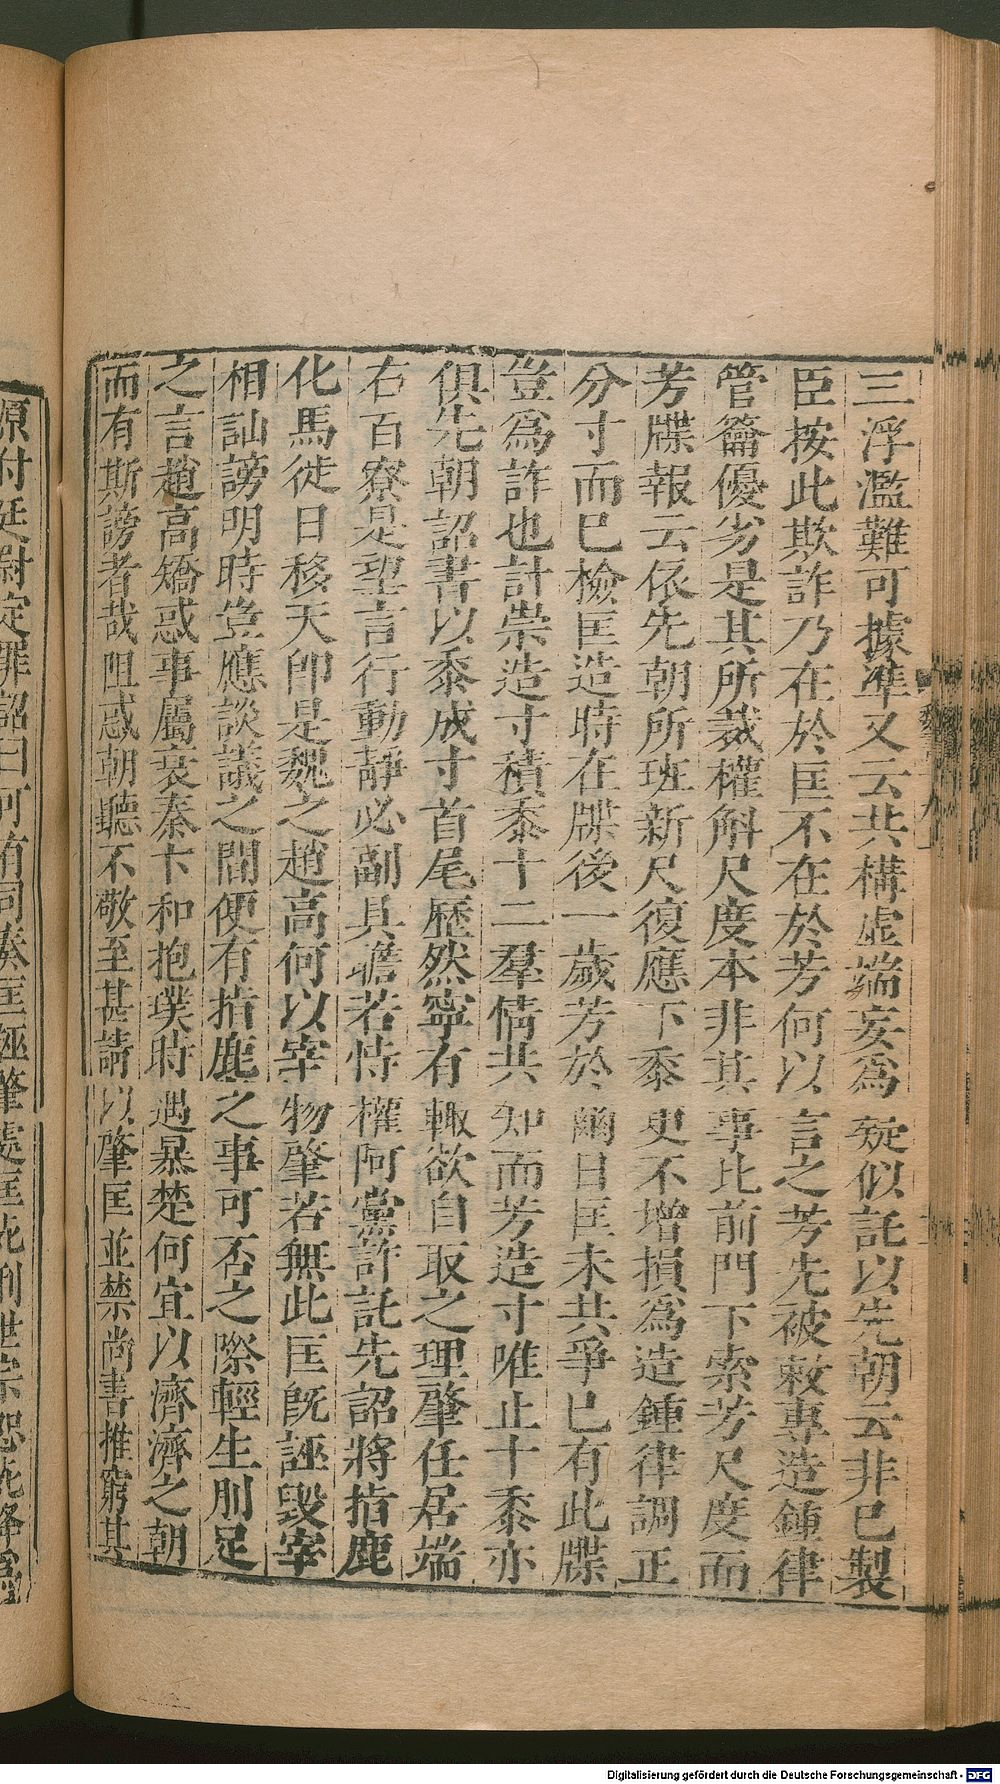 三浮濫難可據準又云共構虛端妄爲疑似託以先朝云非已製
臣按此欺詐乃在於匡不在於芳何以言之芳先被敕專造鍾律
管籥優劣是其所裁權斛尺度本非其事比前門下索芳尺度而
芳牒報云依先朝所班新尺復應下黍更不增損爲造鍾律調正
分寸而已檢匡造時在牒後一歲芳於爾日匡未共爭已有此牒
豈爲詐也計崇造寸積黍十二羣情共知而芳造寸唯止十黍亦
俱先朝詔書以黍成寸首尾歷然寧有輙欲自取之理肇任居端
右百寮是望言行動靜必副具瞻若恃權阿黨詐託先詔將指鹿
化馬徙日移天卽是魏之趙高何以宰物肇若無此匡旣誣毀宰
相訕謗明時豈應談議之閒便有指鹿之事可否之際輕生刖足
之言趙高矯惑事屬衰秦卞和抱璞時遇暴楚何宜以濟濟之朝
而有斯謗者哉阻惑朝聽不敬至甚請以肇匡並禁尚書推窮其
原付廷尉定罪詔曰可有司奏匡誣肇處匡死刑世宗恕死降
Digitalisierung gefördert durch die Deutsche Forschungsgemeinschaft - DFG